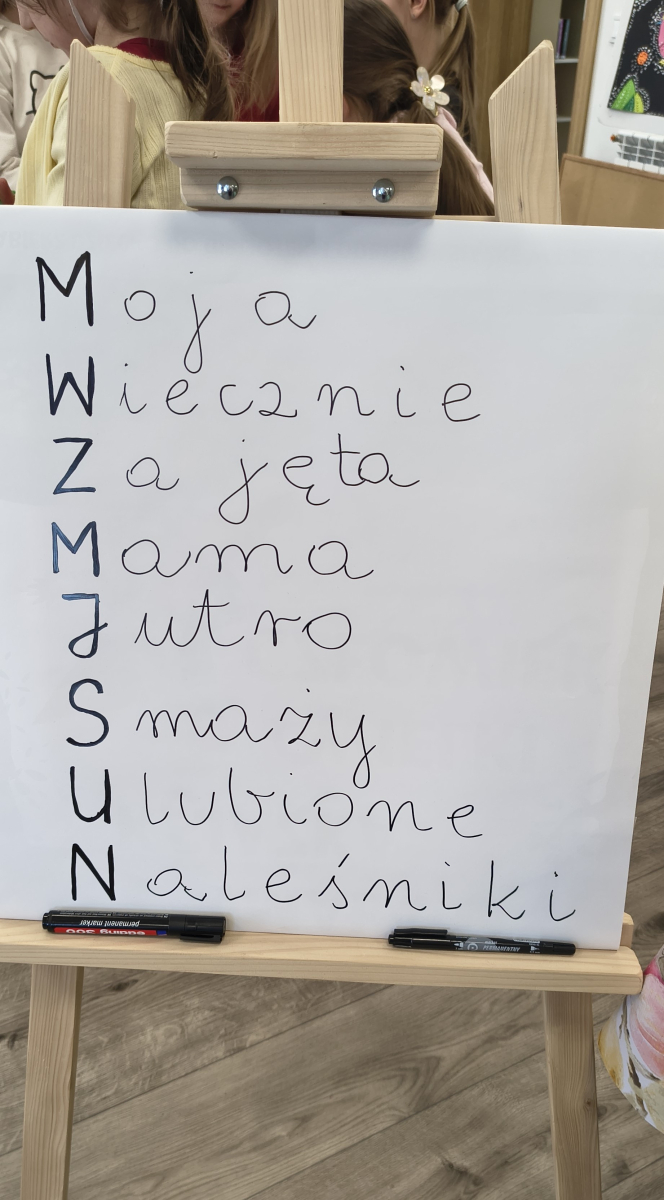 Moja
Wiecznie
Zajęta
Mama
Jutro
Smaży
Ulubione
Naleśniki
permanent marker
edding 300
PERMANENT